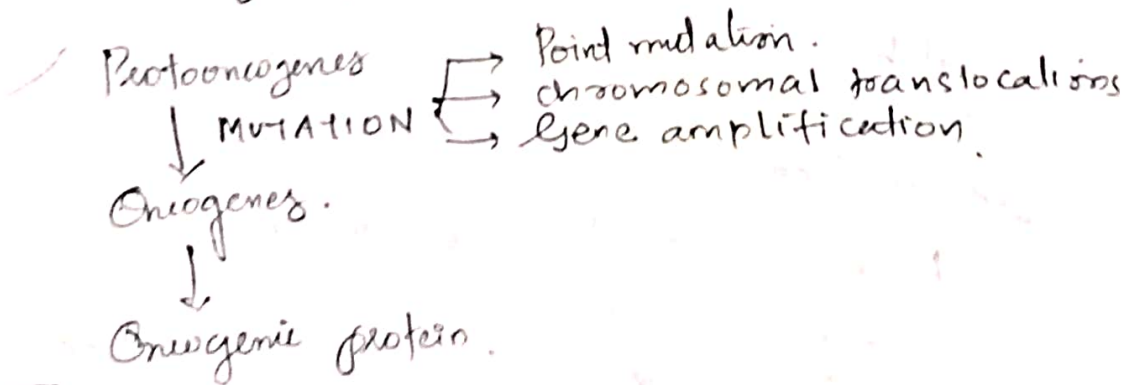 Protooncogenes
Point mutation.
MUTATION
chromosomal translocations
Gene amplification.
Oncogenes.
Oncogenic protein.